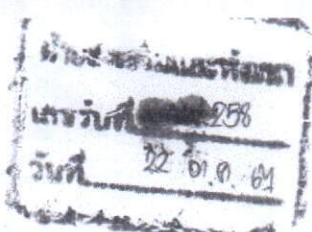 ฝ่ายส่งเสริมและพัฒนา
เลขรับที่ 258
วันที่ 22 ต.ค. 64